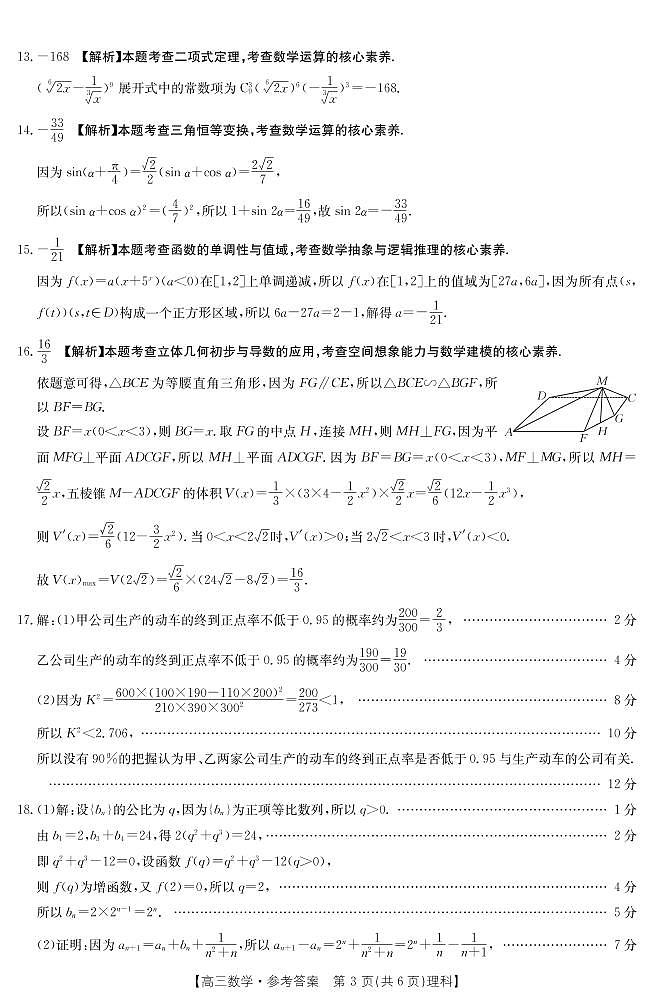 13. －168 【解析】本题考查二项式定理,考查数学运算的核心素养.
(⁶√(2x)－1/³√x)⁹ 展开式中的常数项为 C₉³(⁶√(2x))⁶(－1/³√x)³＝－168.
14. －33/49 【解析】本题考查三角恒等变换,考查数学运算的核心素养.
因为 sin(α＋π/4)＝√2/2(sin α＋cos α)＝2√2/7,
所以(sin α＋cos α)²＝(4/7)²,所以 1＋sin 2α＝16/49,故 sin 2α＝－33/49.
15. －1/21 【解析】本题考查函数的单调性与值域,考查数学抽象与逻辑推理的核心素养.
因为 f(x)＝a(x＋5ˣ)(a＜0)在[1,2]上单调递减,所以 f(x)在[1,2]上的值域为[27a,6a],因为所有点(s,
f(t))(s,t∈D)构成一个正方形区域,所以 6a－27a＝2－1,解得 a＝－1/21.
16. 16/3 【解析】本题考查立体几何初步与导数的应用,考查空间想象能力与数学建模的核心素养.
依题意可得,△BCE 为等腰直角三角形,因为 FG∥CE,所以△BCE∽△BGF,所
以 BF＝BG.
设 BF＝x(0＜x＜3),则 BG＝x.取 FG 的中点 H,连接 MH,则 MH⊥FG,因为平
面 MFG⊥平面 ADCGF,所以 MH⊥平面 ADCGF.因为 BF＝BG＝x(0＜x＜3),MF⊥MG,所以 MH＝
√2/2 x,五棱锥 M－ADCGF 的体积 V(x)＝1/3×(3×4－1/2 x²)×√2/2 x＝√2/6(12x－1/2 x³),
则 V′(x)＝√2/6(12－3/2 x²).当 0＜x＜2√2时,V′(x)＞0;当 2√2＜x＜3 时,V′(x)＜0.
故 V(x)max＝V(2√2)＝√2/6×(24√2－8√2)＝16/3.
M
D
C
G
A
H
F
17. 解:(1)甲公司生产的动车的终到正点率不低于 0.95 的概率约为200/300＝2/3, …… 2 分
乙公司生产的动车的终到正点率不低于 0.95 的概率约为190/300＝19/30. …… 4 分
(2)因为 K²＝600×(100×190－110×200)²/210×390×300²＝200/273＜1, …… 8 分
所以 K²＜2.706, …… 10 分
所以没有 90%的把握认为甲、乙两家公司生产的动车的终到正点率是否低于 0.95 与生产动车的公司有关.
…… 12 分
18. (1)解:设{bₙ}的公比为 q,因为{bₙ}为正项等比数列,所以 q＞0. …… 1 分
由 b₁＝2,b₃＋b₄＝24,得 2(q²＋q³)＝24, …… 2 分
即 q²＋q³－12＝0,设函数 f(q)＝q²＋q³－12(q＞0),
则 f(q)为增函数,又 f(2)＝0,所以 q＝2, …… 4 分
所以 bₙ＝2×2ⁿ⁻¹＝2ⁿ. …… 5 分
(2)证明:因为 aₙ₊₁＝aₙ＋bₙ＋1/(n²＋n),所以 aₙ₊₁－aₙ＝2ⁿ＋1/(n²＋n)＝2ⁿ＋1/n－1/(n＋1), …… 7 分
【高三数学·参考答案 第 3 页(共 6 页)理科】